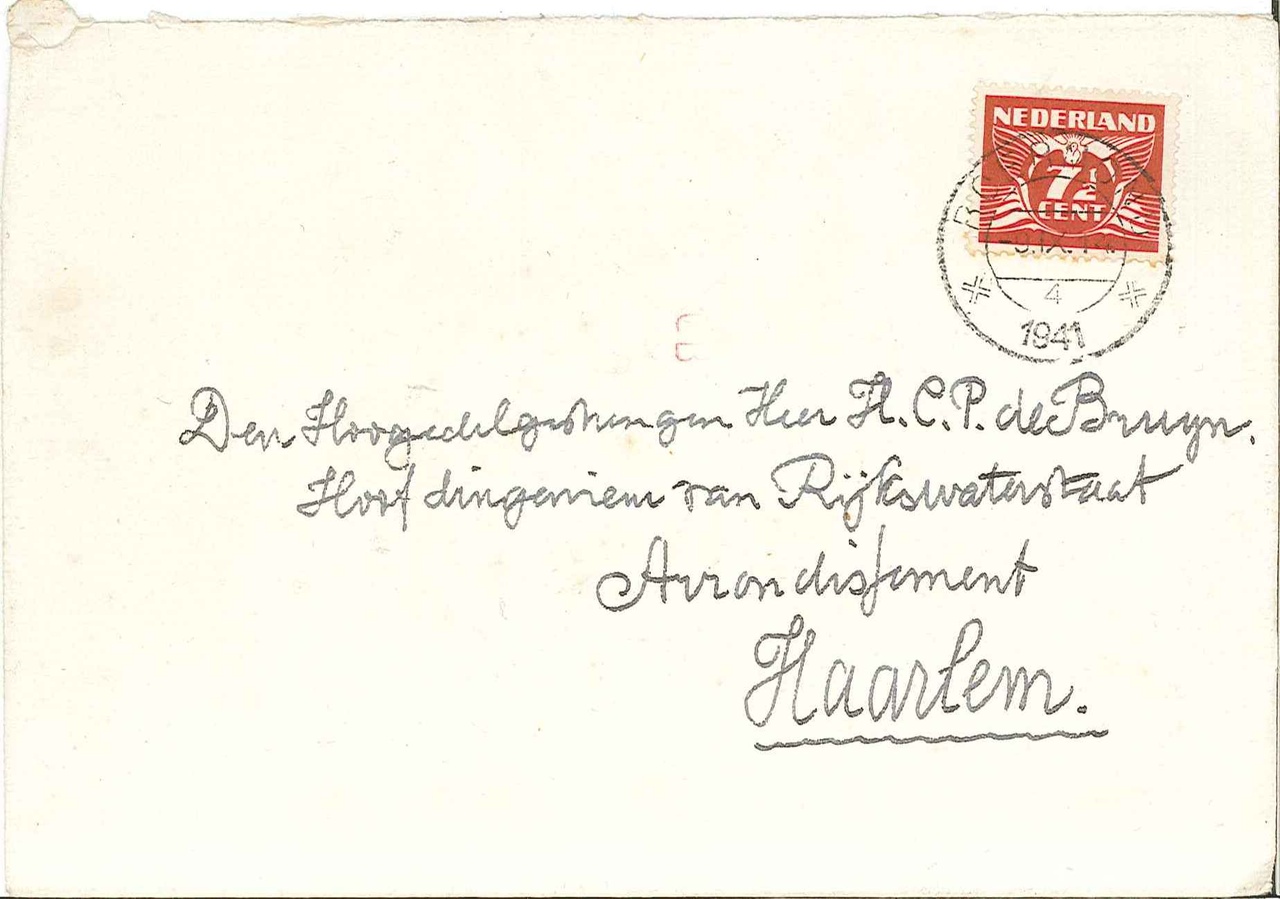 NEDERLAND
7½
CENT
4
1941
Den Hoogedelgestrengen Heer H.C.P. de Bruyn.
Hoofdingenieur van Rijkswaterstaat
Arrondissement
Haarlem.